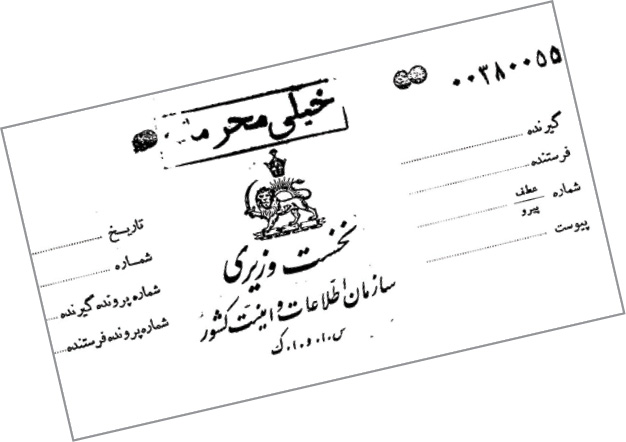 ۰۰۳۸۰۰۵۵
خیلی محرمانه
گیرنده
فرستنده
شماره عطف
پیرو
پیوست
نخست وزیری
سازمان اطلاعات و امنیت کشور
س.ا.و.ا.ک
تاریخ
شماره
شماره پرونده گیرنده
شماره پرونده فرستنده